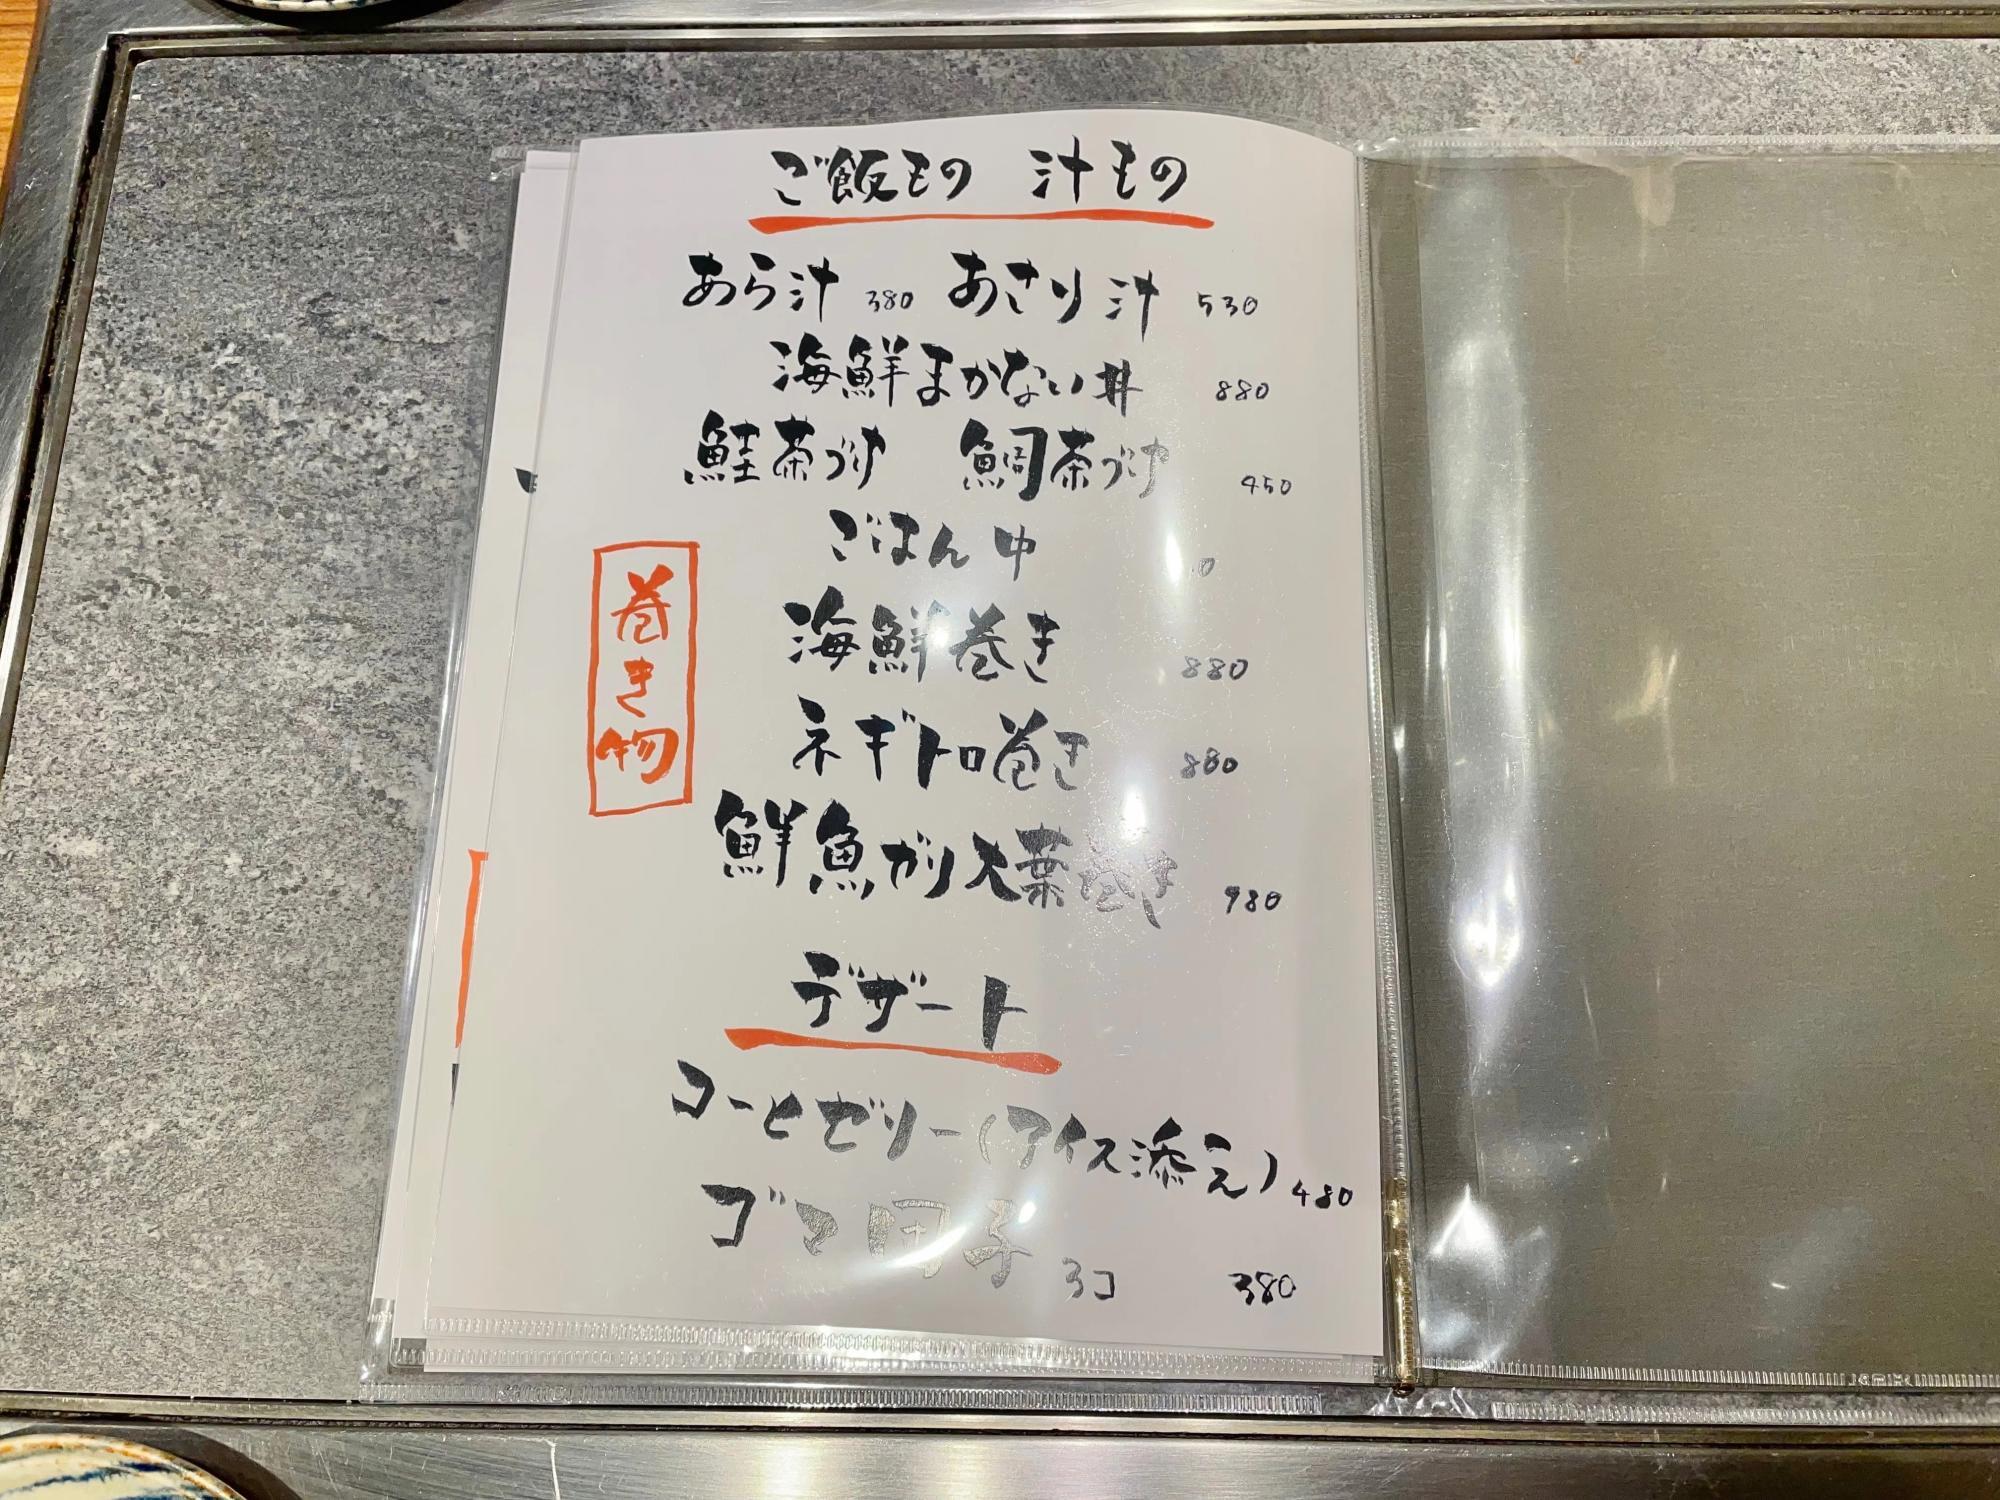 ご飯もの 汁もの
あら汁 380 あさり汁 530
海鮮まかない丼 880
鮭茶づけ 鯛茶づけ 450
ごはん 中
巻き物
海鮮巻き 880
ネギトロ巻き 880
鮮魚ガリ大葉巻き 980
デザート
コーヒゼリー(アイス添え) 480
ゴマ団子 3コ 380